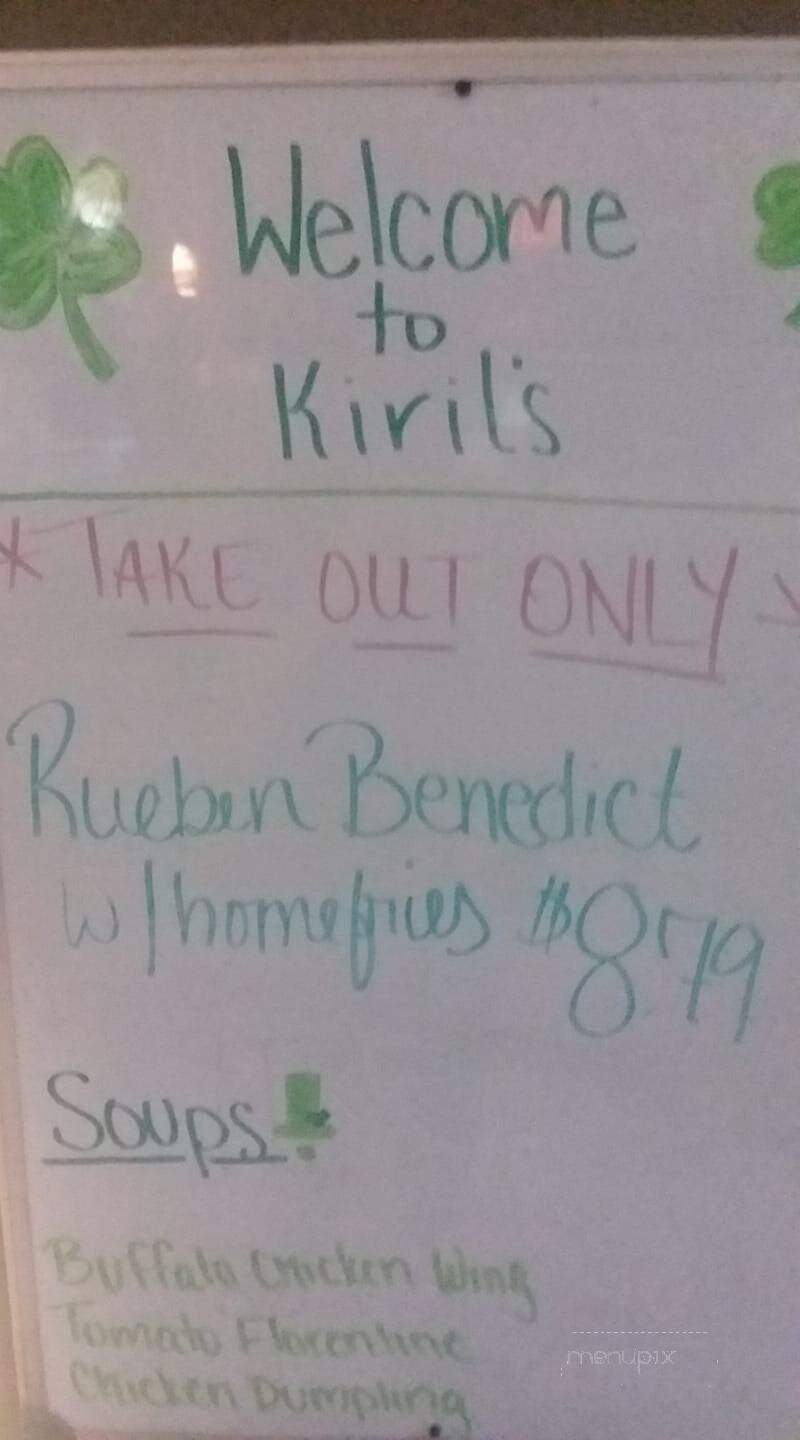 Welcome
to
Kiril's
* TAKE OUT ONLY *
Rueben Benedict
w/homefries $8.79
Soups
Buffalo Chicken Wing
Tomato Florentine
Chicken Dumpling
menupix